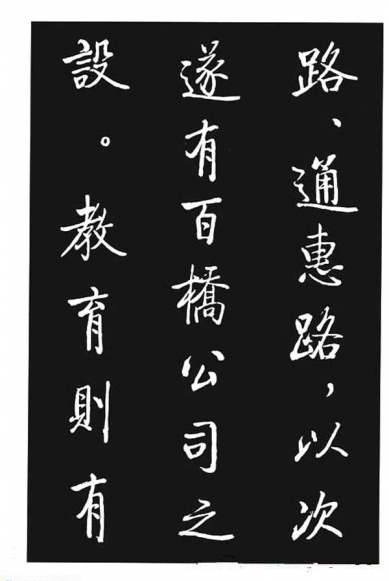 路、通惠路，以次
遂有百橋公司之
設。教育則有